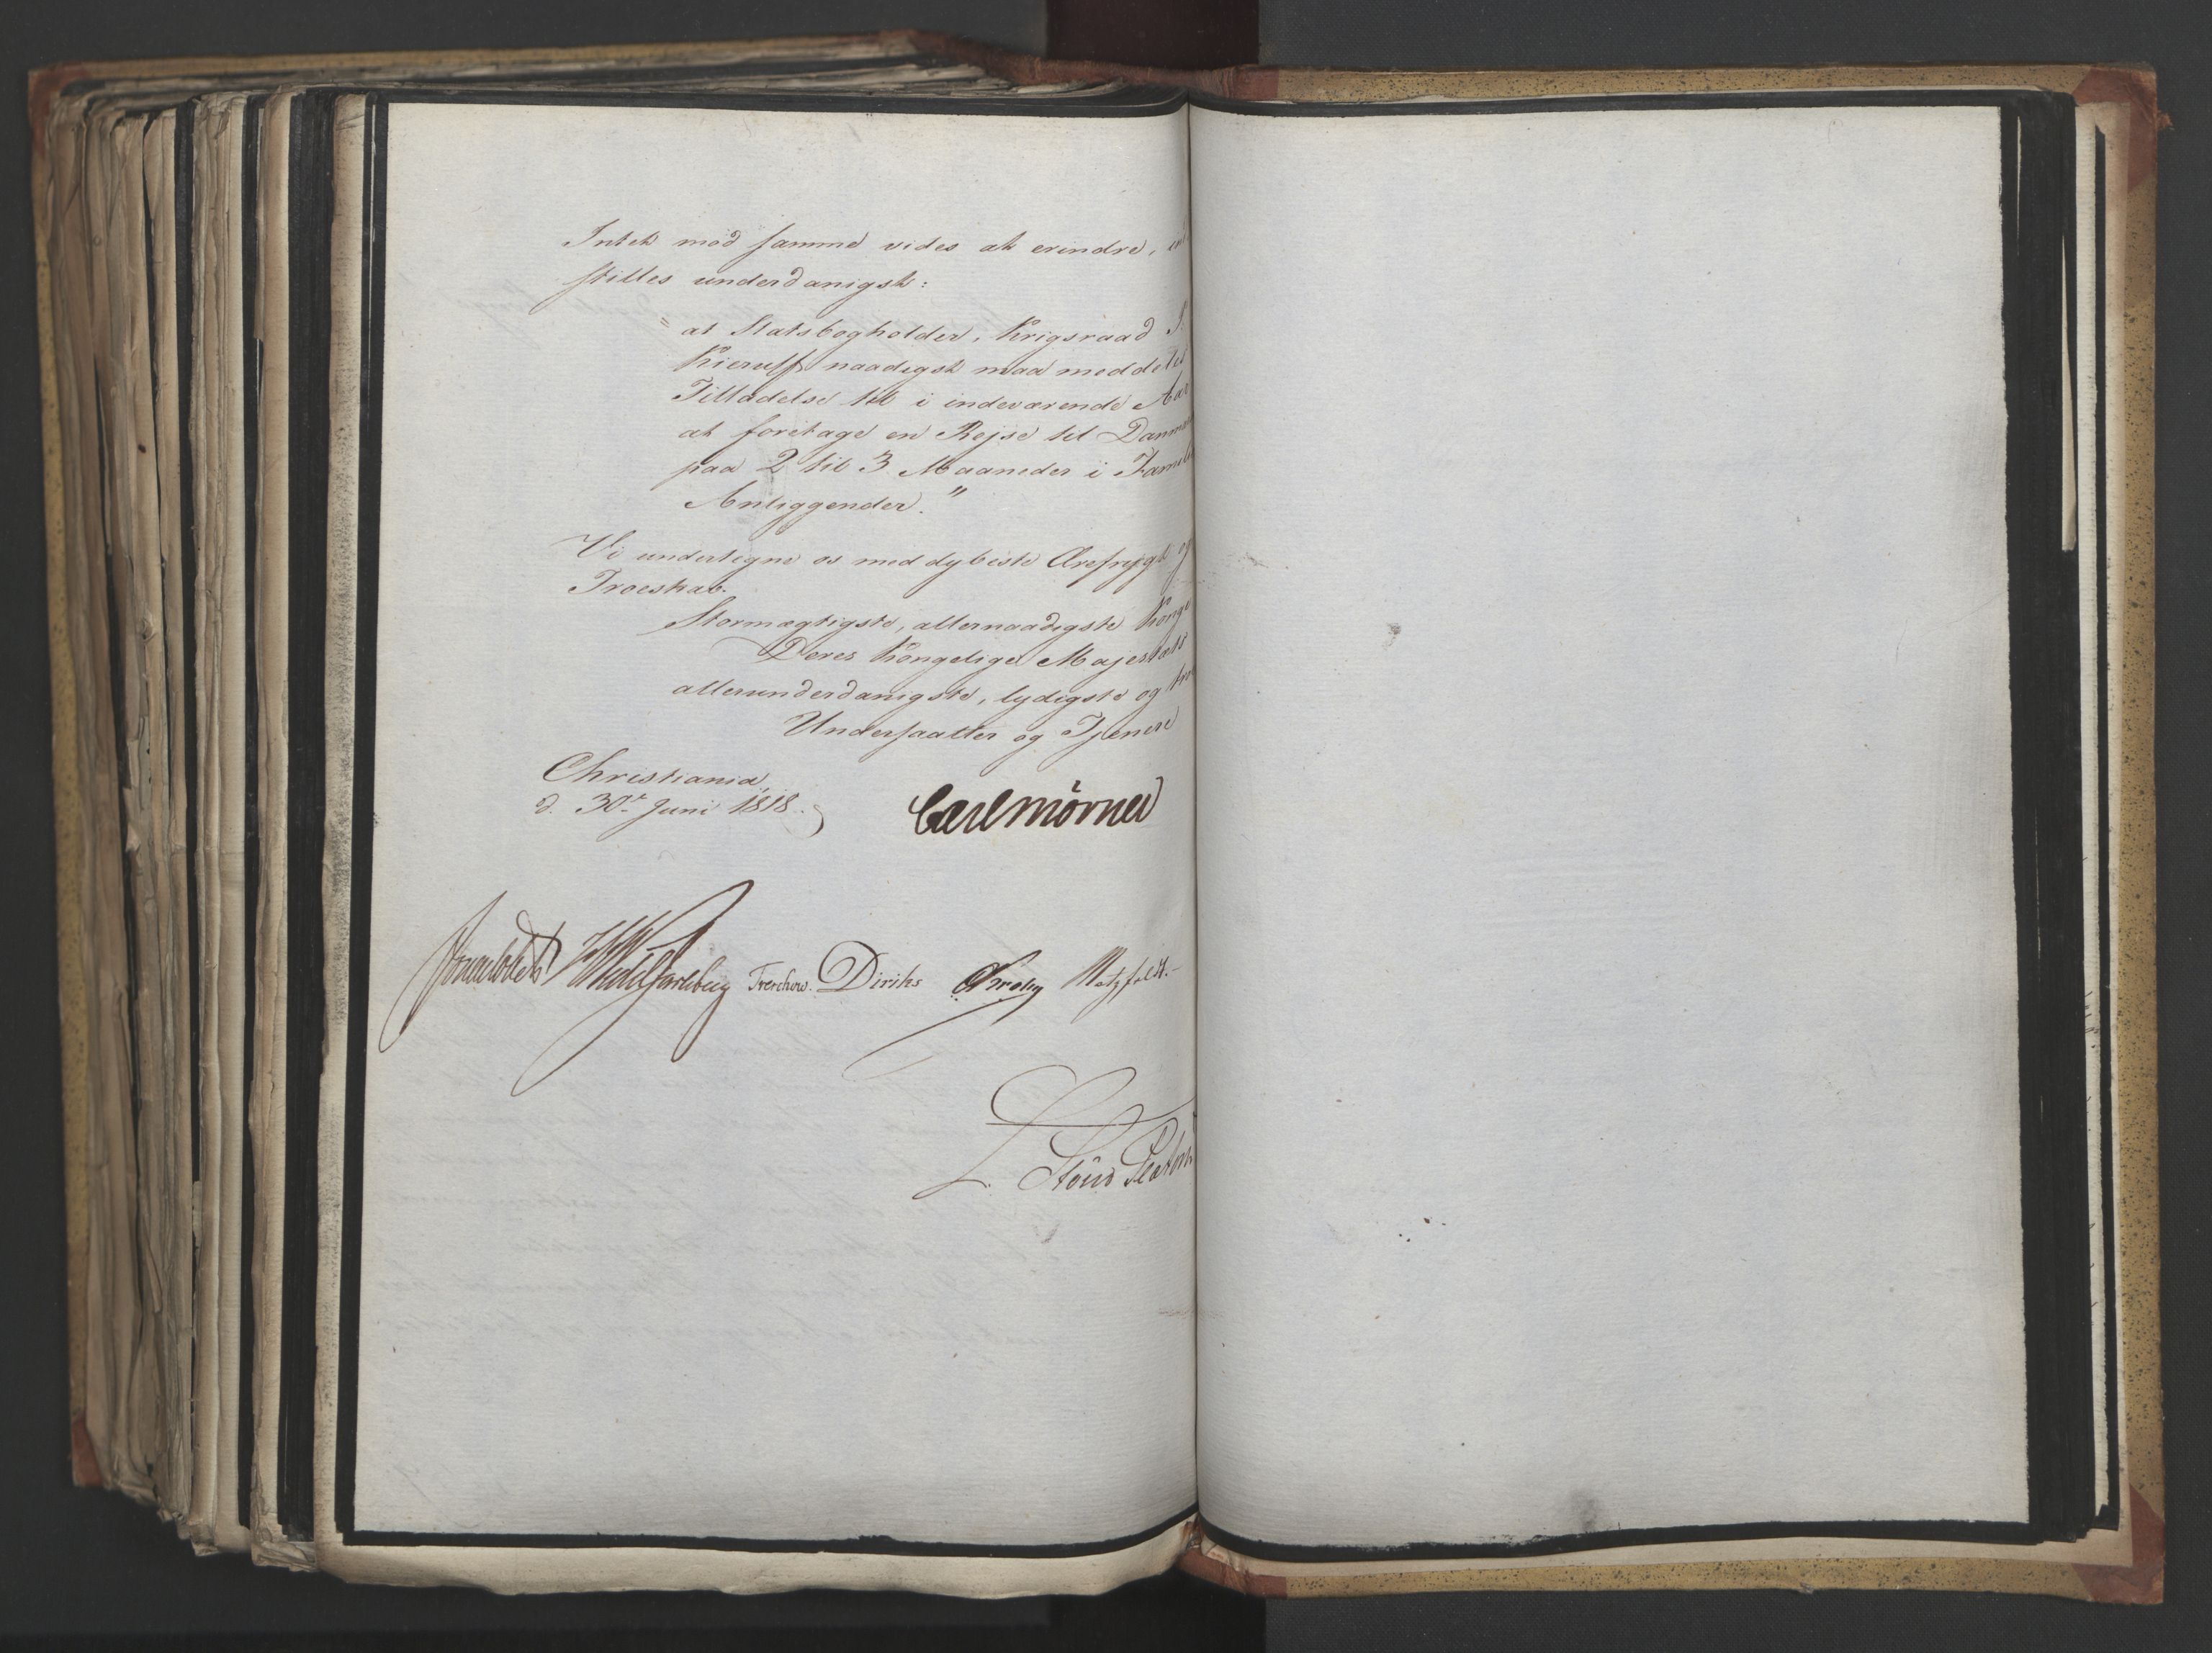 Intet mod samme vides at erindre, in
stilles underdanigst:
" at Statsbogholder, Krigsraad P.
Kierulff naadigst maa meddeles
Tilladelse til i indeværende Aar
at foretage en Rejse til Danma
paa 2 til 3 Maaneder i Famili
Anliggender."
Vi undertegne os med dybeste Ærefrygt og
Troeskab.
Stormægtigste, allernaadigste Konge
Deres Kongelige Majestæts
allerunderdanigste, lydigste og tro
Undersaatter og Tjenere
Christiania,
d. 30te Juni 1818.
Carl Mörner
Sommerhielm HWedel Jarlsberg Treschow. Diriks Krohg Motzfeldt.
L. Stoud Platou